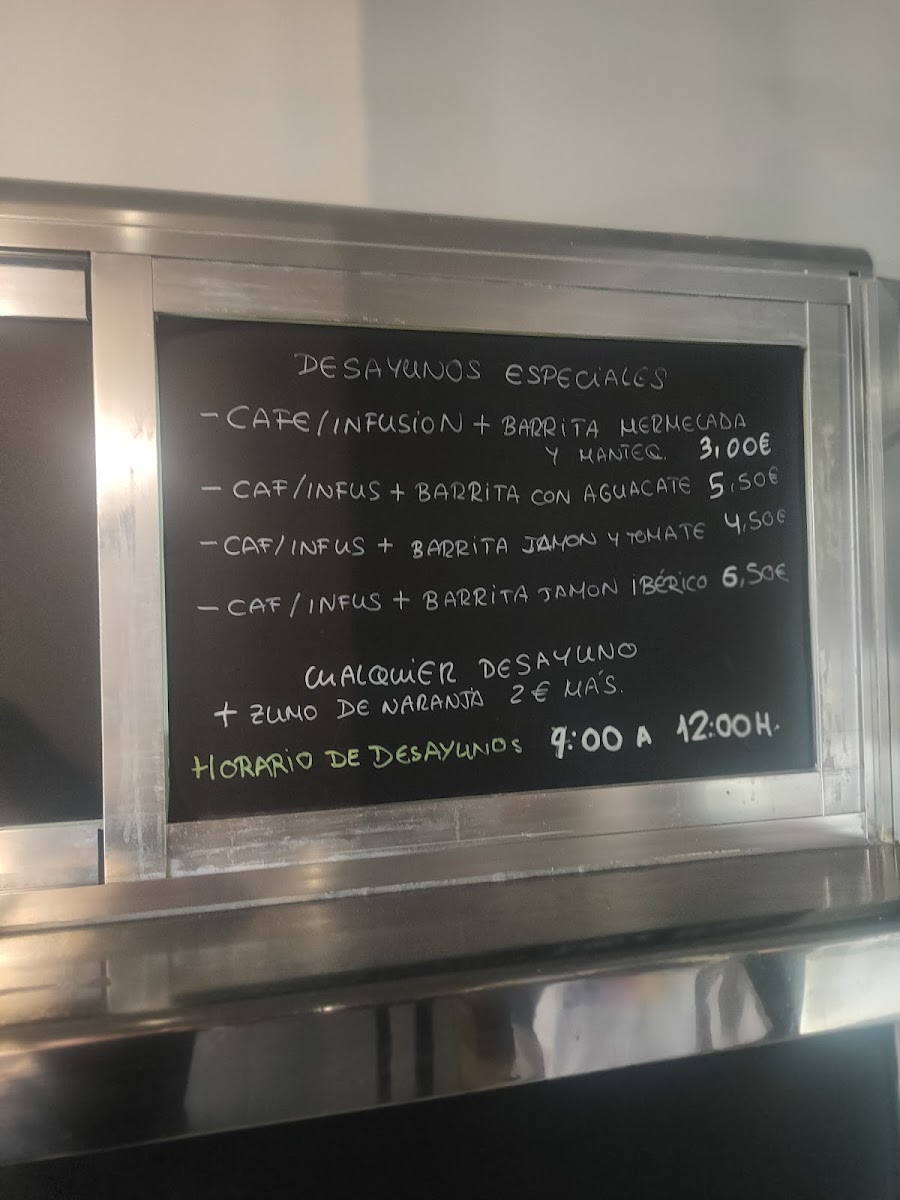 DESAYUNOS ESPECIALES
- CAFE/INFUSION + BARRITA MERMELADA
Y MANTEQ. 3,00€
- CAF/INFUS + BARRITA CON AGUACATE 5,50€
- CAF/INFUS + BARRITA JAMON Y TOMATE 4,50€
- CAF/INFUS + BARRITA JAMON IBÉRICO 6,50€
CUALQUIER DESAYUNO
+ ZUMO DE NARANJA 2€ MÁS.
HORARIO DE DESAYUNOS 9:00 A 12:00H.